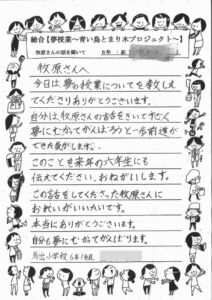 総合【夢授業～青い鳥とまり木プロジェクト～】
牧原さんの話を聞いて 6年1組
牧原さんへ
今日は夢の授業についてを教えて
くださりありがとうございます。
自分は牧原さんの話をきいてすごく
夢にむかてがんばろうと一歩前進が
できた気がします。
このことを来年の六年生にも
伝えてください、おねがいします。
この話をしてくださった牧原さんに
おれいがいいたいです。
本当にありがとうございます。
自分も夢にむかてがんばります。
馬出小学校 6年1組